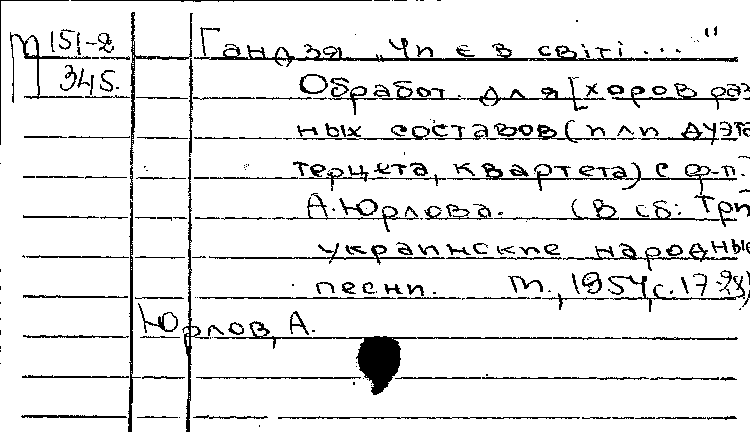 П 151-2
345.
Гандзя „Чи є в світі..."
Обработ. для [хоров раз
ных составов (или дуэта
терцета, квартета) с ф-п.
А. Юрлова. (В сб: Три
украинские народные
песни. М., 1954, с. 17-28)
Юрлов, А.